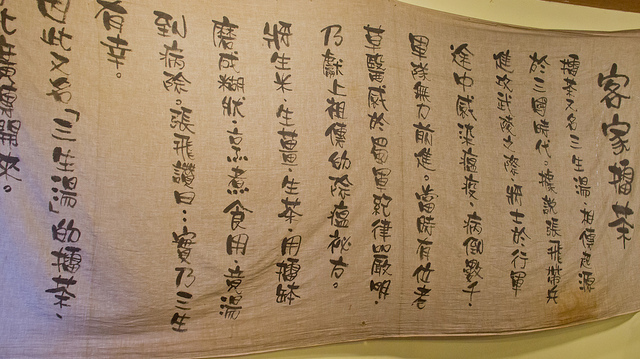 客家擂茶
擂茶又名三生湯,相傳起源
於三國時代。據說張飛帶兵
進攻武陵時,將士於行軍
途中感染瘟疫,病倒數千,
軍隊無力前進。當時有位老
草醫感於蜀軍紀律嚴明,
乃獻上祖傳的除瘟祕方。
將生米.生薑.生茶.用擂缽
磨成糊狀.烹煮食用竟湯
到病除。張飛讚曰:實乃三生
有幸。
因此又名「三生湯」的擂茶.
從此廣為開來。